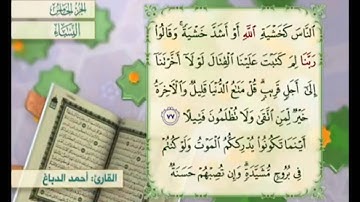 الجزء الخامس
النساء
النَّاسَ كَخَشْيَةِ اللَّهِ أَوْ أَشَدَّ خَشْيَةً ۚ وَقَالُوا
رَبَّنَا لِمَ كَتَبْتَ عَلَيْنَا الْقِتَالَ لَوْلَا أَخَّرْتَنَا
إِلَىٰ أَجَلٍ قَرِيبٍ ۗ قُلْ مَتَاعُ الدُّنْيَا قَلِيلٌ وَالْآخِرَةُ
خَيْرٌ لِّمَنِ اتَّقَىٰ وَلَا تُظْلَمُونَ فَتِيلًا ٧٧
أَيْنَمَا تَكُونُوا يُدْرِككُّمُ الْمَوْتُ وَلَوْ كُنتُمْ
فِي بُرُوجٍ مُّشَيَّدَةٍ ۗ وَإِن تُصِبْهُمْ حَسَنَةٌ
القارئ: أحمد الدباغ